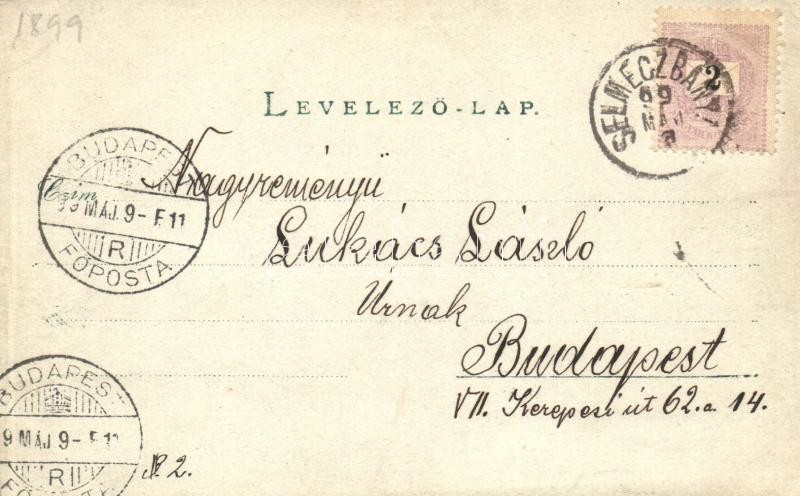 1899
LEVELEZŐ-LAP.
SELMECZBÁNYA
99
MÁJ
2
BUDAPEST
99 MÁJ. 9 - F. 11
R
FŐPOSTA
Czim
Nagyreményü
Lukács László
Úrnak
Budapest
VII. Kerepesi út 62. a. 14.
BUDAPEST
9 MÁJ 9 - F 11
R
FŐPOSTA
№ 2.